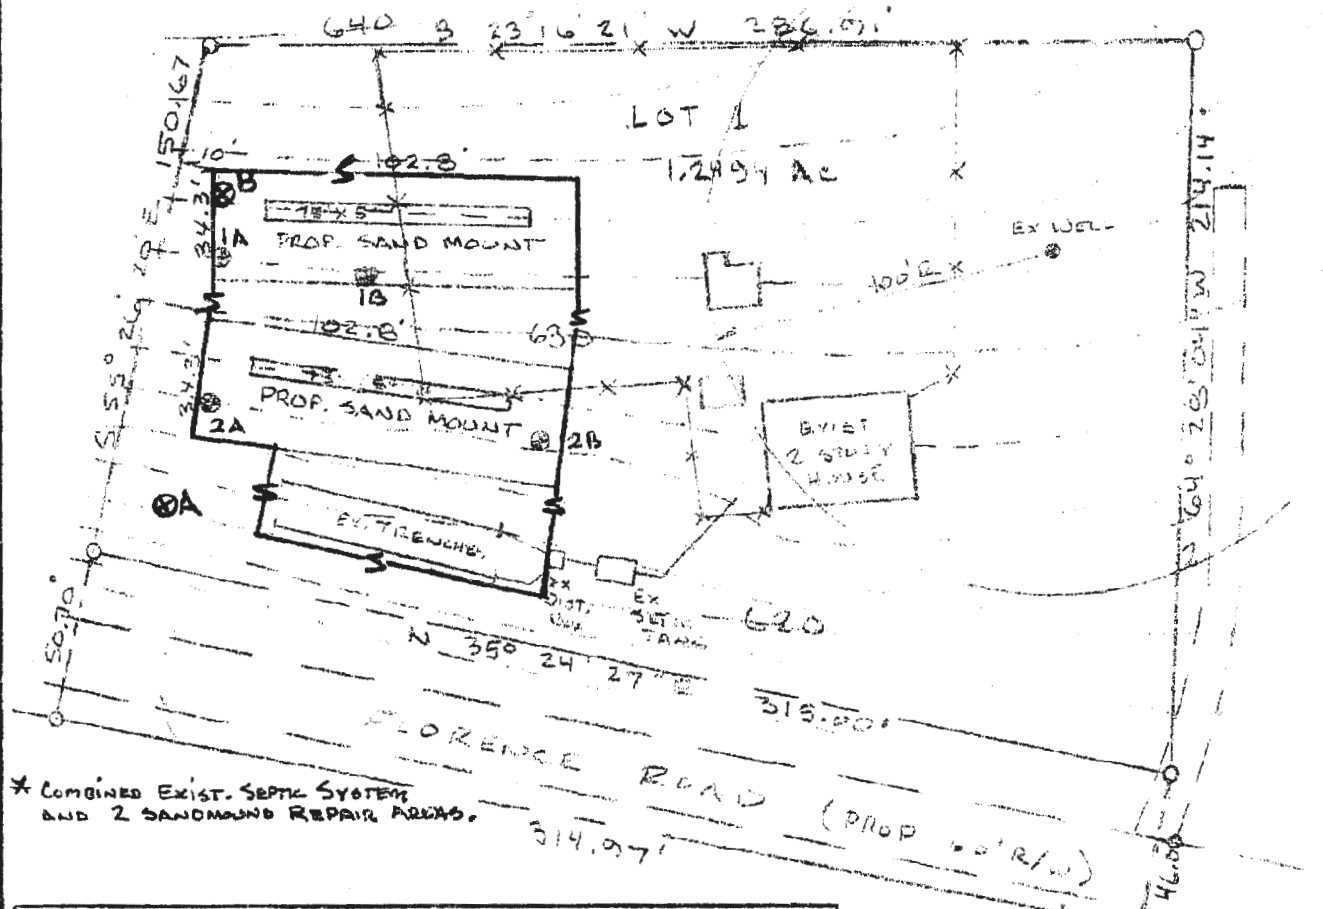 640
S 23 16 21 W
LOT 1
150.167
10'
102.8'
B
34.3'
75 x 5
1A
PROP. SAND MOUNT
EX WELL
214.14'
1B
100'R
102.8'
63
34.3'
75
PROP. SAND MOUNT
2A
2B
EXIST
2 STORY
HOUSE
A
EX. TRENCHES
EX
DIST.
EX
SEPTIC
TANK
620
50.70'
N 35° 24' 27"
FLORENCE ROAD (PROP 60' R/W)
314.97'
46.00
* COMBINED EXIST. SEPTIC SYSTEM
AND 2 SANDMOUND REPAIR AREAS.